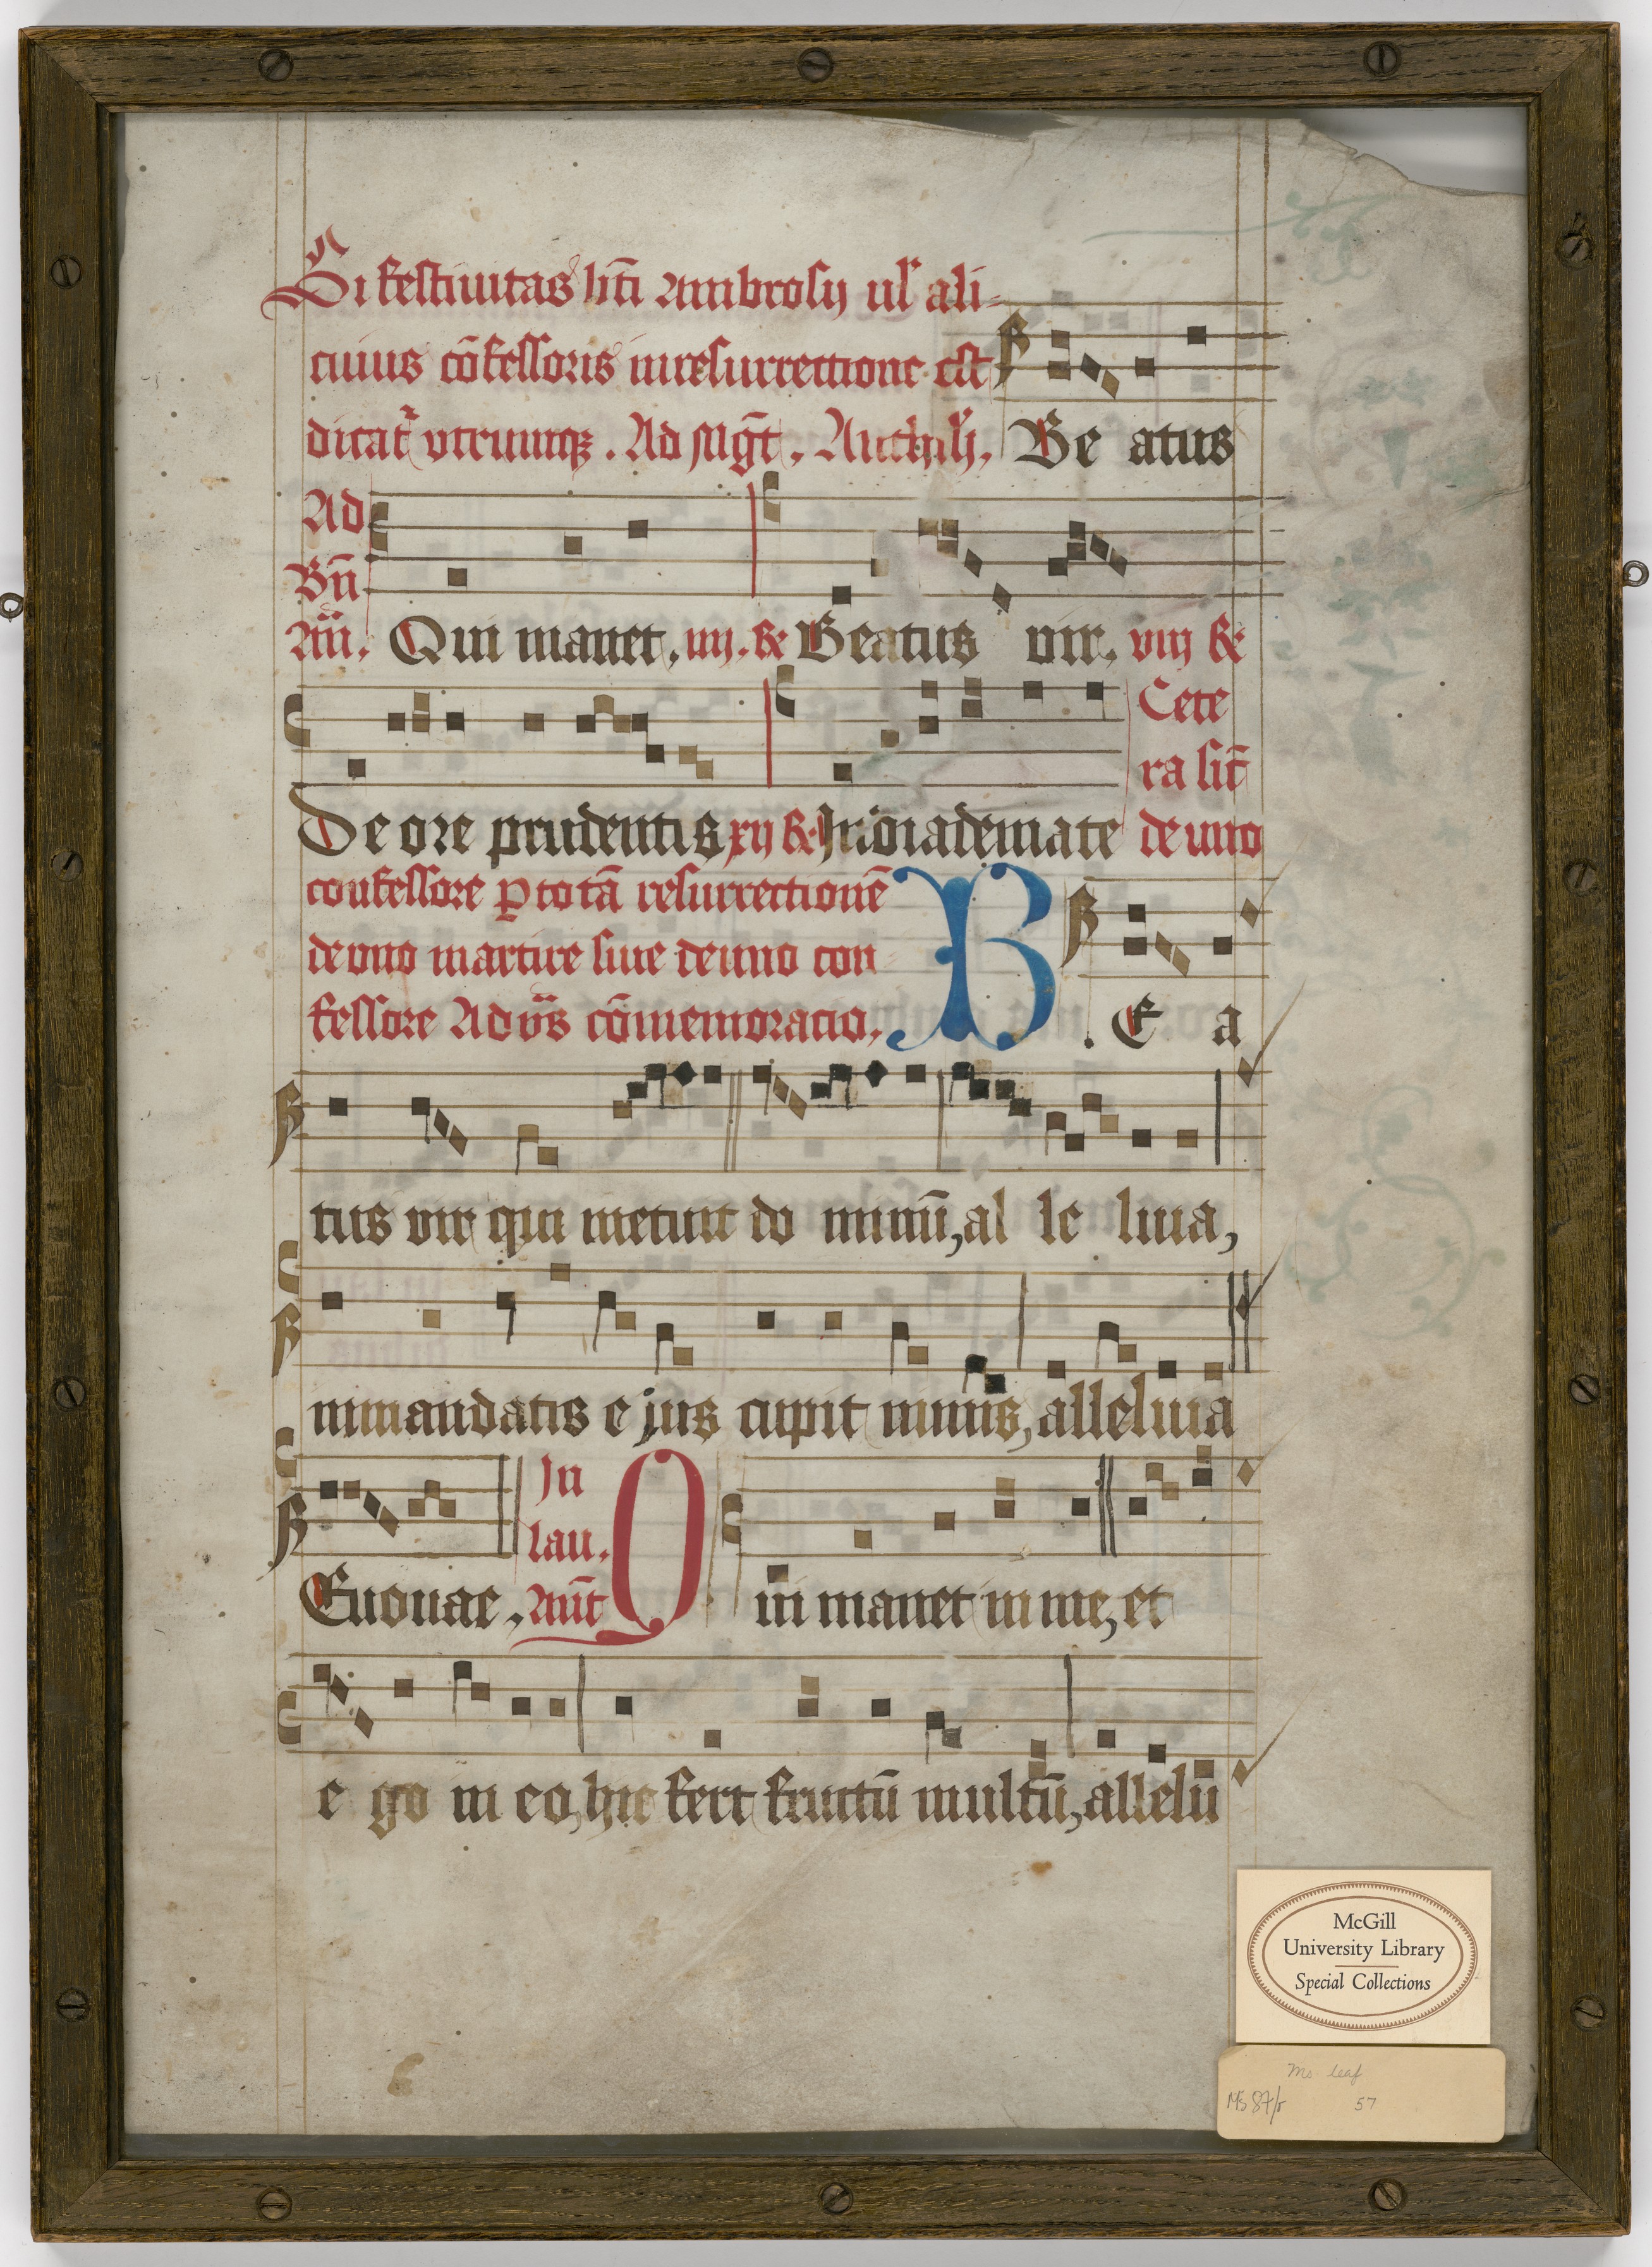 Si festiuitas bti Ambrosij ul ali-
cuius cōfessoris in resurrectione est
dicat utrumqz. Ad Mgt. Antiph. Be atus
Ad
Bn
An. Qui manet. iiij. R Beatus vir. viij R
Cete
ra sūt
De ore prudentis xij R. In diademate de uno
confessore p totā resurrectionē
de uno martire siue de uno con
fessore Ad vs cōmemoratio. B. E a
tus vir qui metuit do minū, al le luia,
in mandatis ejus cupit nimis, alleluia
In
lau.
Euouae. Ant Q ui manet in me, et
e go in eo, hic fert fructū multū, allelu
McGill
University Library
Special Collections
Ms leaf
MS 87/r 57